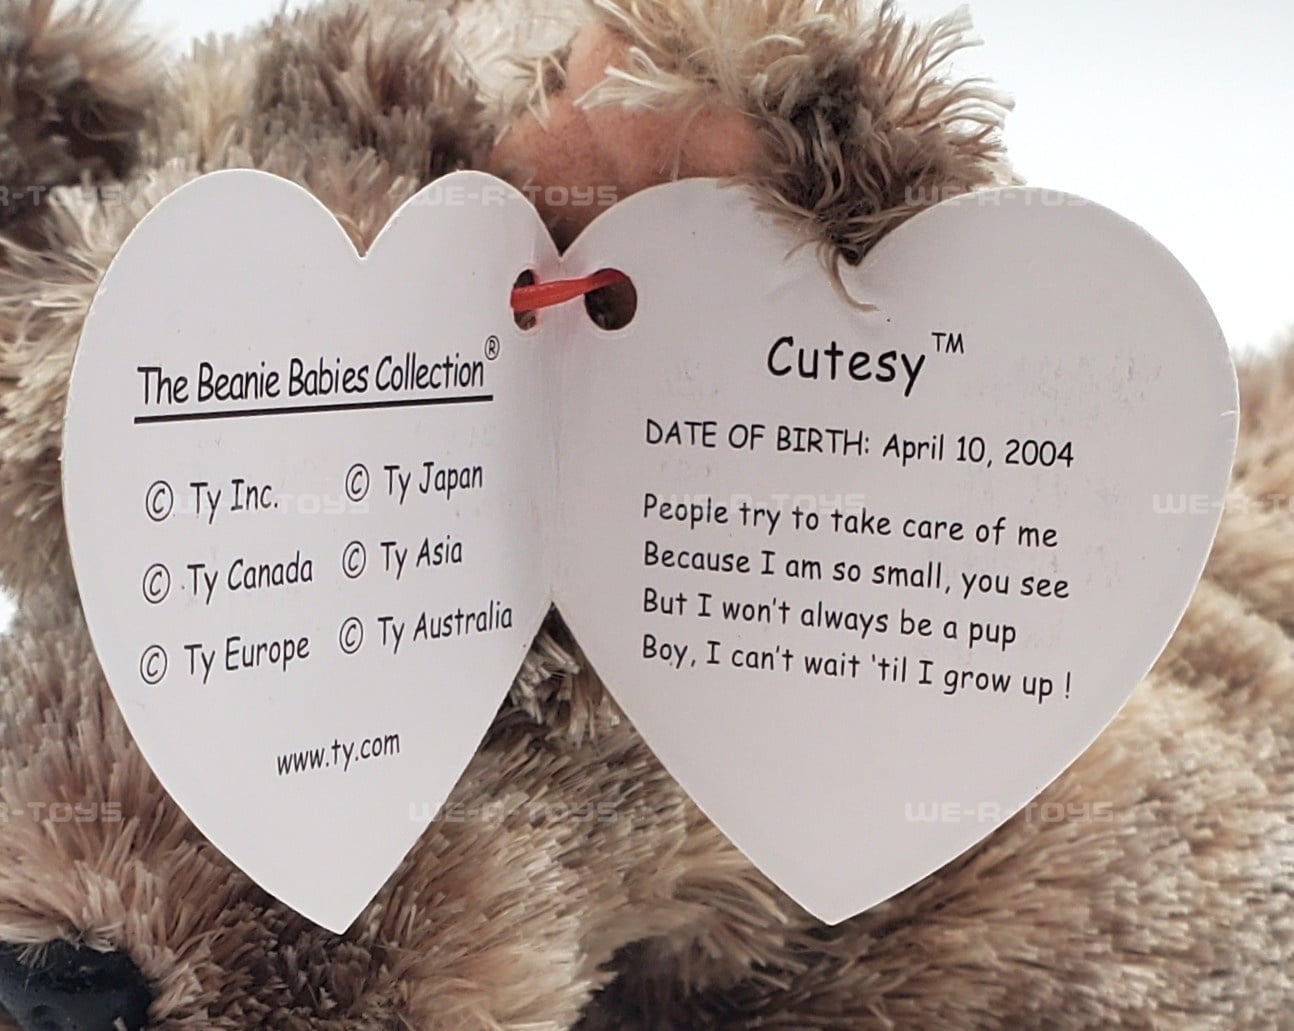 The Beanie Babies Collection®
© Ty Inc.
© Ty Japan
© Ty Canada
© Ty Asia
© Ty Europe
© Ty Australia
www.ty.com
Cutesy™
DATE OF BIRTH: April 10, 2004
People try to take care of me
Because I am so small, you see
But I won't always be a pup
Boy, I can't wait 'til I grow up !
WE-R-TOYS